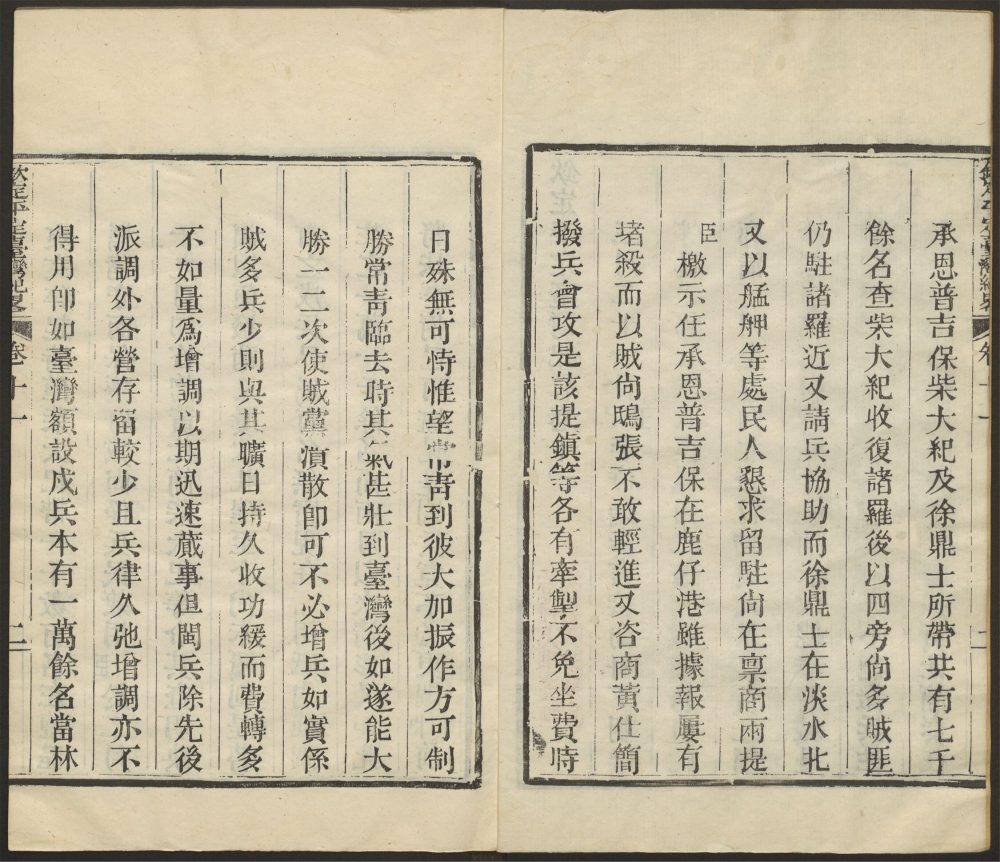 承恩普吉保柴大紀及徐鼎士所帶共有七千
餘名查柴大紀收復諸羅後以四旁尙多賊匪
仍駐諸羅近又請兵協助而徐鼎士在淡水北
又以艋舺等處民人懇求留駐尙在禀商兩提
臣檄示任承恩普吉保在鹿仔港雖據報屢有
堵殺而以賊尙鴟張不敢輕進又咨商黃仕簡
撥兵會攻是該提鎮等各有牽掣不免坐費時
日殊無可恃惟望常靑到彼大加振作方可制
勝常靑臨去時其氣甚壯到臺灣後如遂能大
勝一二次使賊黨潰散卽可不必增兵如實係
賊多兵少則與其曠日持久收功緩而費轉多
不如量爲增調以期迅速蕆事但閩兵除先後
派調外各營存留較少且兵律久弛增調亦不
得用卽如臺灣額設戍兵本有一萬餘名當林
欽定平定臺灣紀略
卷十一
二